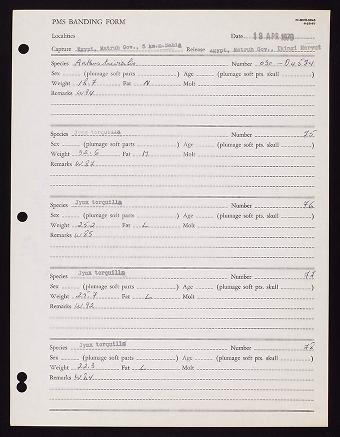 PMS BANDING FORM
Localities Date 18 APR 1970
Capture Egypt, Matruh Gov., 5 km. Release Egypt, Matruh Gov., Ikingi Maryut
Species Number 050-
Sex (plumage soft parts ) Age (plumage soft pts. skull )
Weight 18.7 Fat N Molt
Remarks W94
Species Jynx torquilla Number 75
Sex (plumage soft parts ) Age (plumage soft pts. skull )
Weight 32.6 Fat M Molt
Remarks W82
Species Jynx torquilla Number 76
Sex (plumage soft parts ) Age (plumage soft pts. skull )
Weight 25.2 Fat L Molt
Remarks W85
Species Jynx torquilla Number 77
Sex (plumage soft parts ) Age (plumage soft pts. skull )
Weight 25.7 Fat L Molt
Remarks W.92
Species Jynx torquilla Number 78
Sex (plumage soft parts ) Age (plumage soft pts. skull )
Weight 22.3 Fat L Molt
Remarks W84